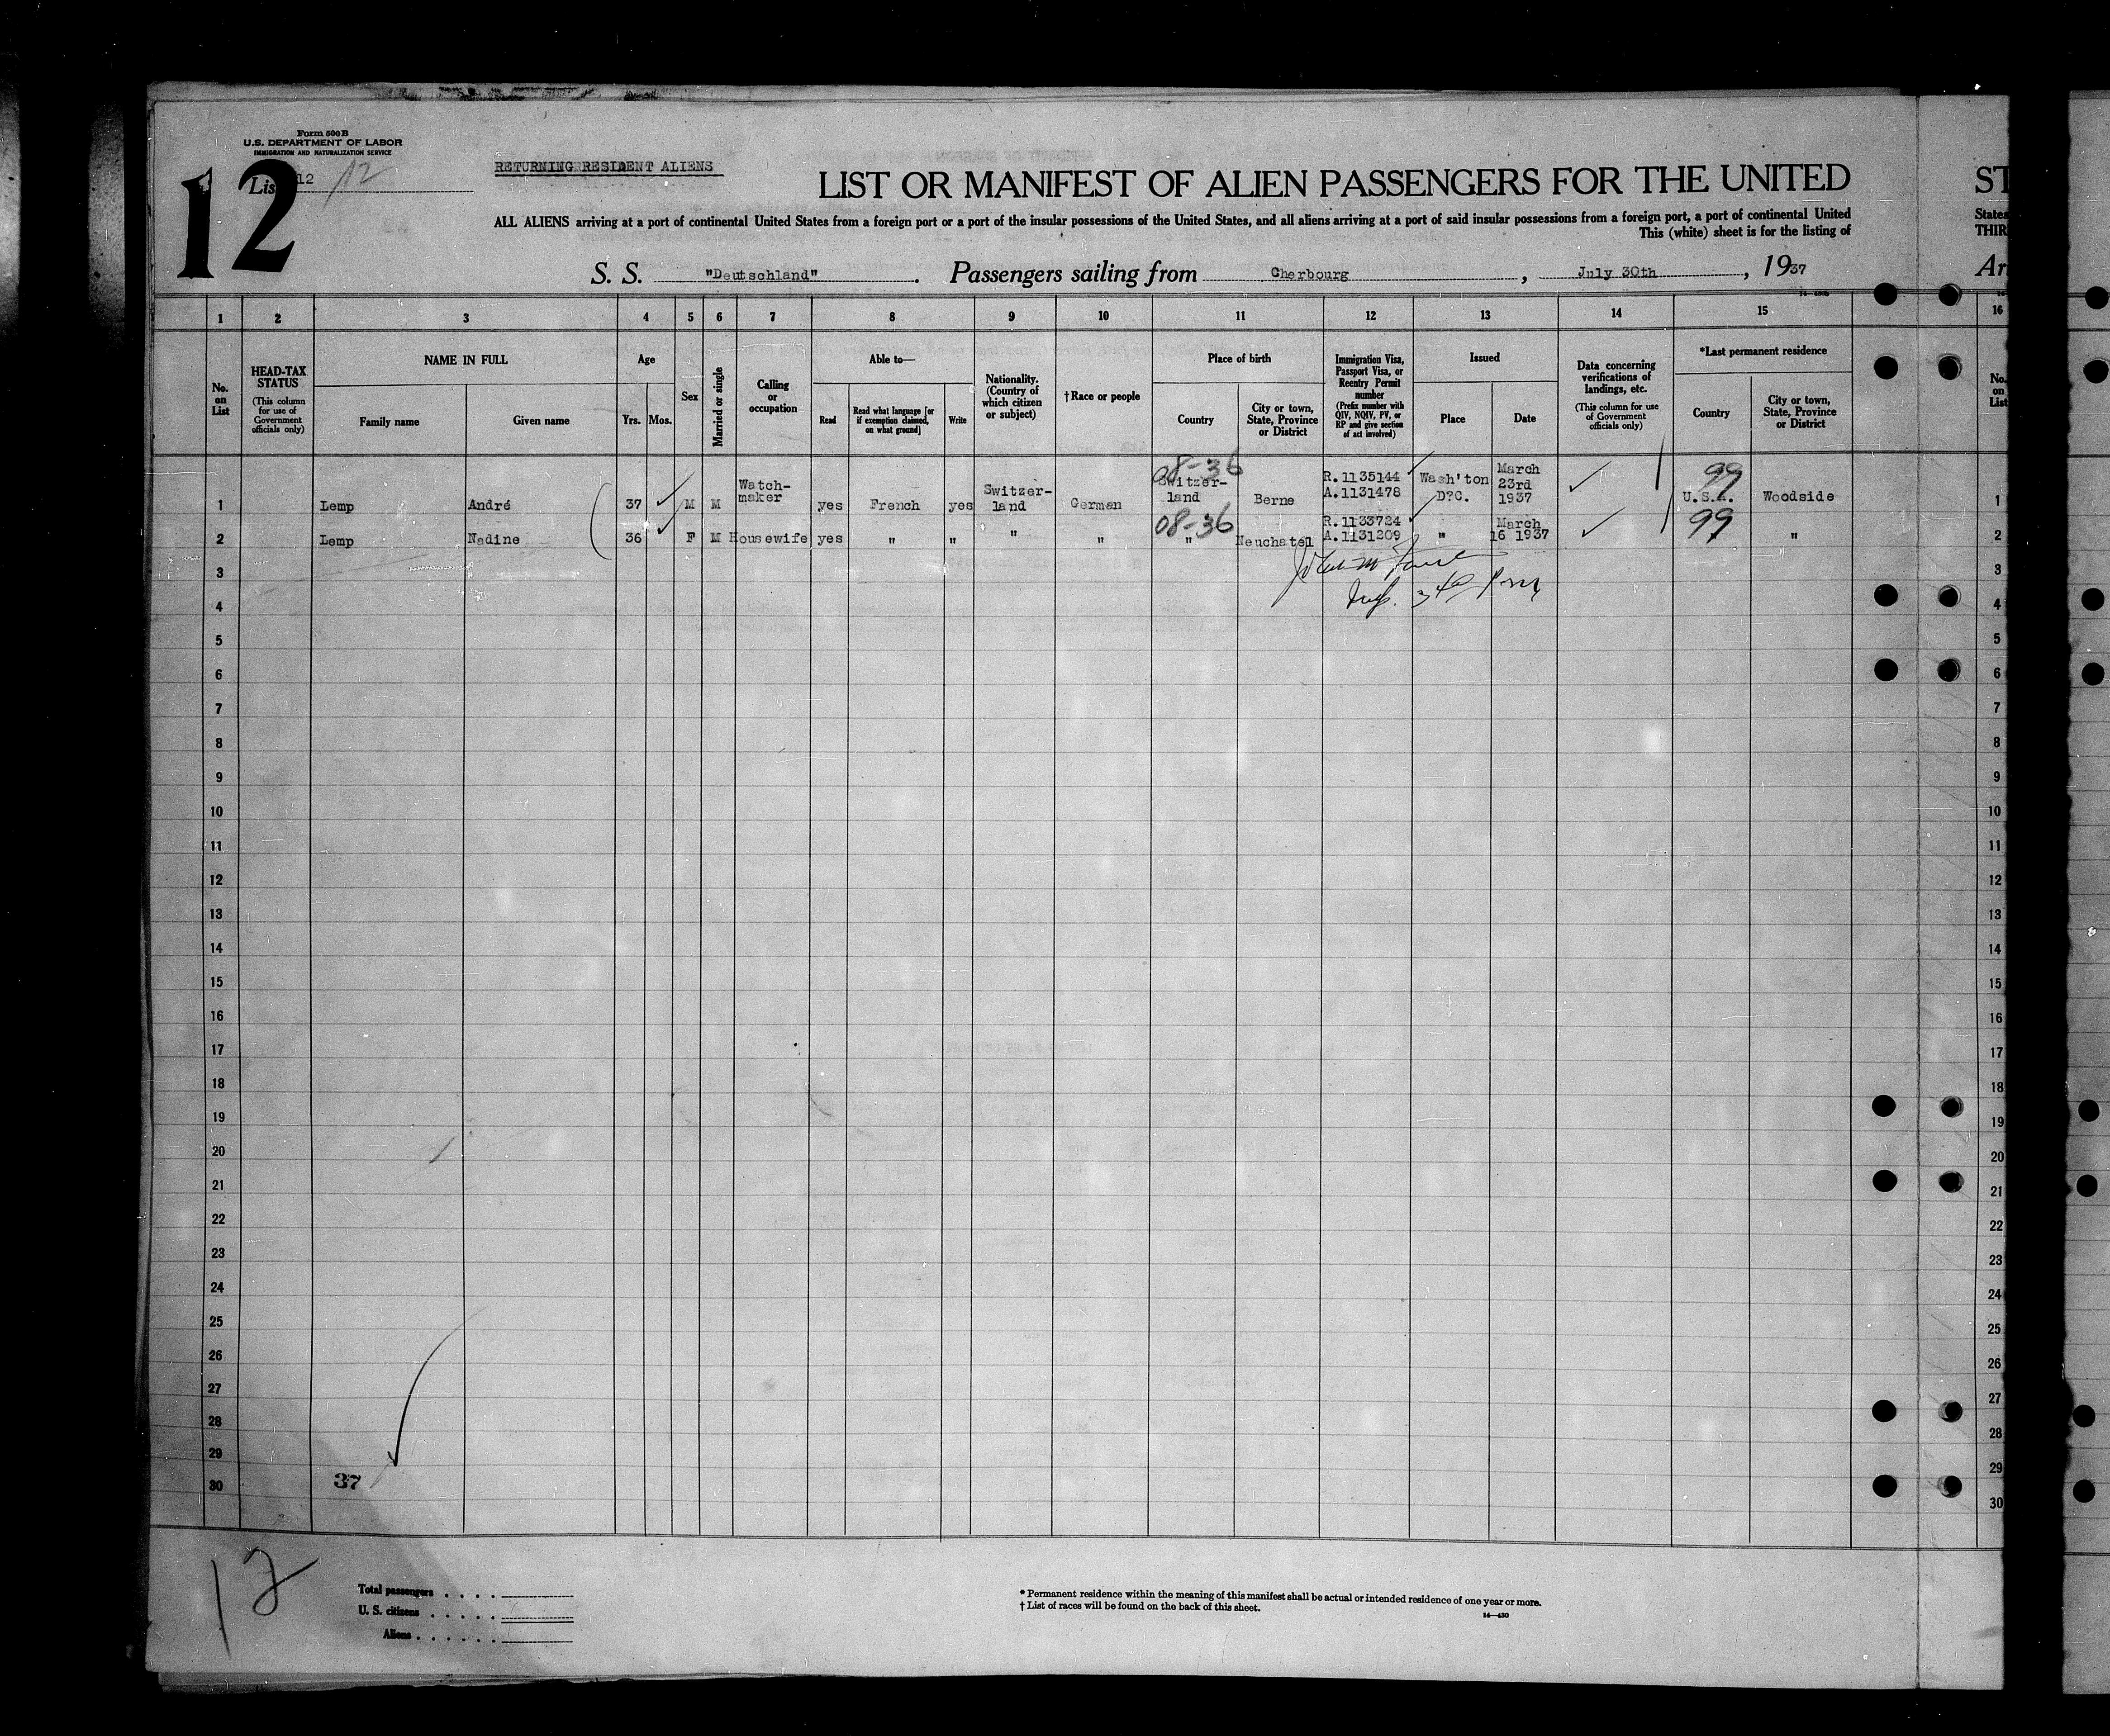 Form 500 B
U.S. DEPARTMENT OF LABOR
IMMIGRATION AND NATURALIZATION SERVICE
12
List 12 12
RETURNING RESIDENT ALIENS
LIST OR MANIFEST OF ALIEN PASSENGERS FOR THE UNITED
ST
ALL ALIENS arriving at a port of continental United States from a foreign port or a port of the insular possessions of the United States, and all aliens arriving at a port of said insular possessions from a foreign port, a port of continental United
States
This (white) sheet is for the listing of
THIR
S. S. "Deutschland". Passengers sailing from Cherbourg, July 30th, 1937
Ar
1 2 3 4 5 6 7 8 9 10 11 12 13 14 15 16
No. on List
HEAD-TAX STATUS
(This column for use of Government officials only)
NAME IN FULL
Family name Given name
Age
Yrs. Mos.
Sex
Married or single
Calling or occupation
Able to—
Read
Read what language [or if exemption claimed, on what ground]
Write
Nationality. (Country of which citizen or subject)
†Race or people
Place of birth
Country
City or town, State, Province or District
Immigration Visa, Passport Visa, or Reentry Permit number
(Prefix number with QIV, NQIV, PV, or RP and give section of act involved)
Issued
Place Date
Data concerning verifications of landings, etc.
(This column for use of Government officials only)
*Last permanent residence
Country
City or town, State, Province or District
No. on List
1 Lemp André 37 M M Watch-maker yes French yes Switzer-land German 08-36 Switzer-land Berne R.1135144 A.1131478 Wash'ton D?C. March 23rd 1937 99 U.S.A. Woodside 1
2 Lemp Nadine 36 F M Housewife yes " " " " 08-36 " Neuchatel R.1133724 A.1131209 " March 16 1937 99 " 2
3 3
4 4
5 5
6 6
7 7
8 8
9 9
10 10
11 11
12 12
13 13
14 14
15 15
16 16
17 17
18 18
19 19
20 20
21 21
22 22
23 23
24 24
25 25
26 26
27 27
28 28
29 29
30 37 30
12
Total passengers . . . .
U. S. citizens . . . . .
Aliens . . . . . .
* Permanent residence within the meaning of this manifest shall be actual or intended residence of one year or more.
† List of races will be found on the back of this sheet.
14—430